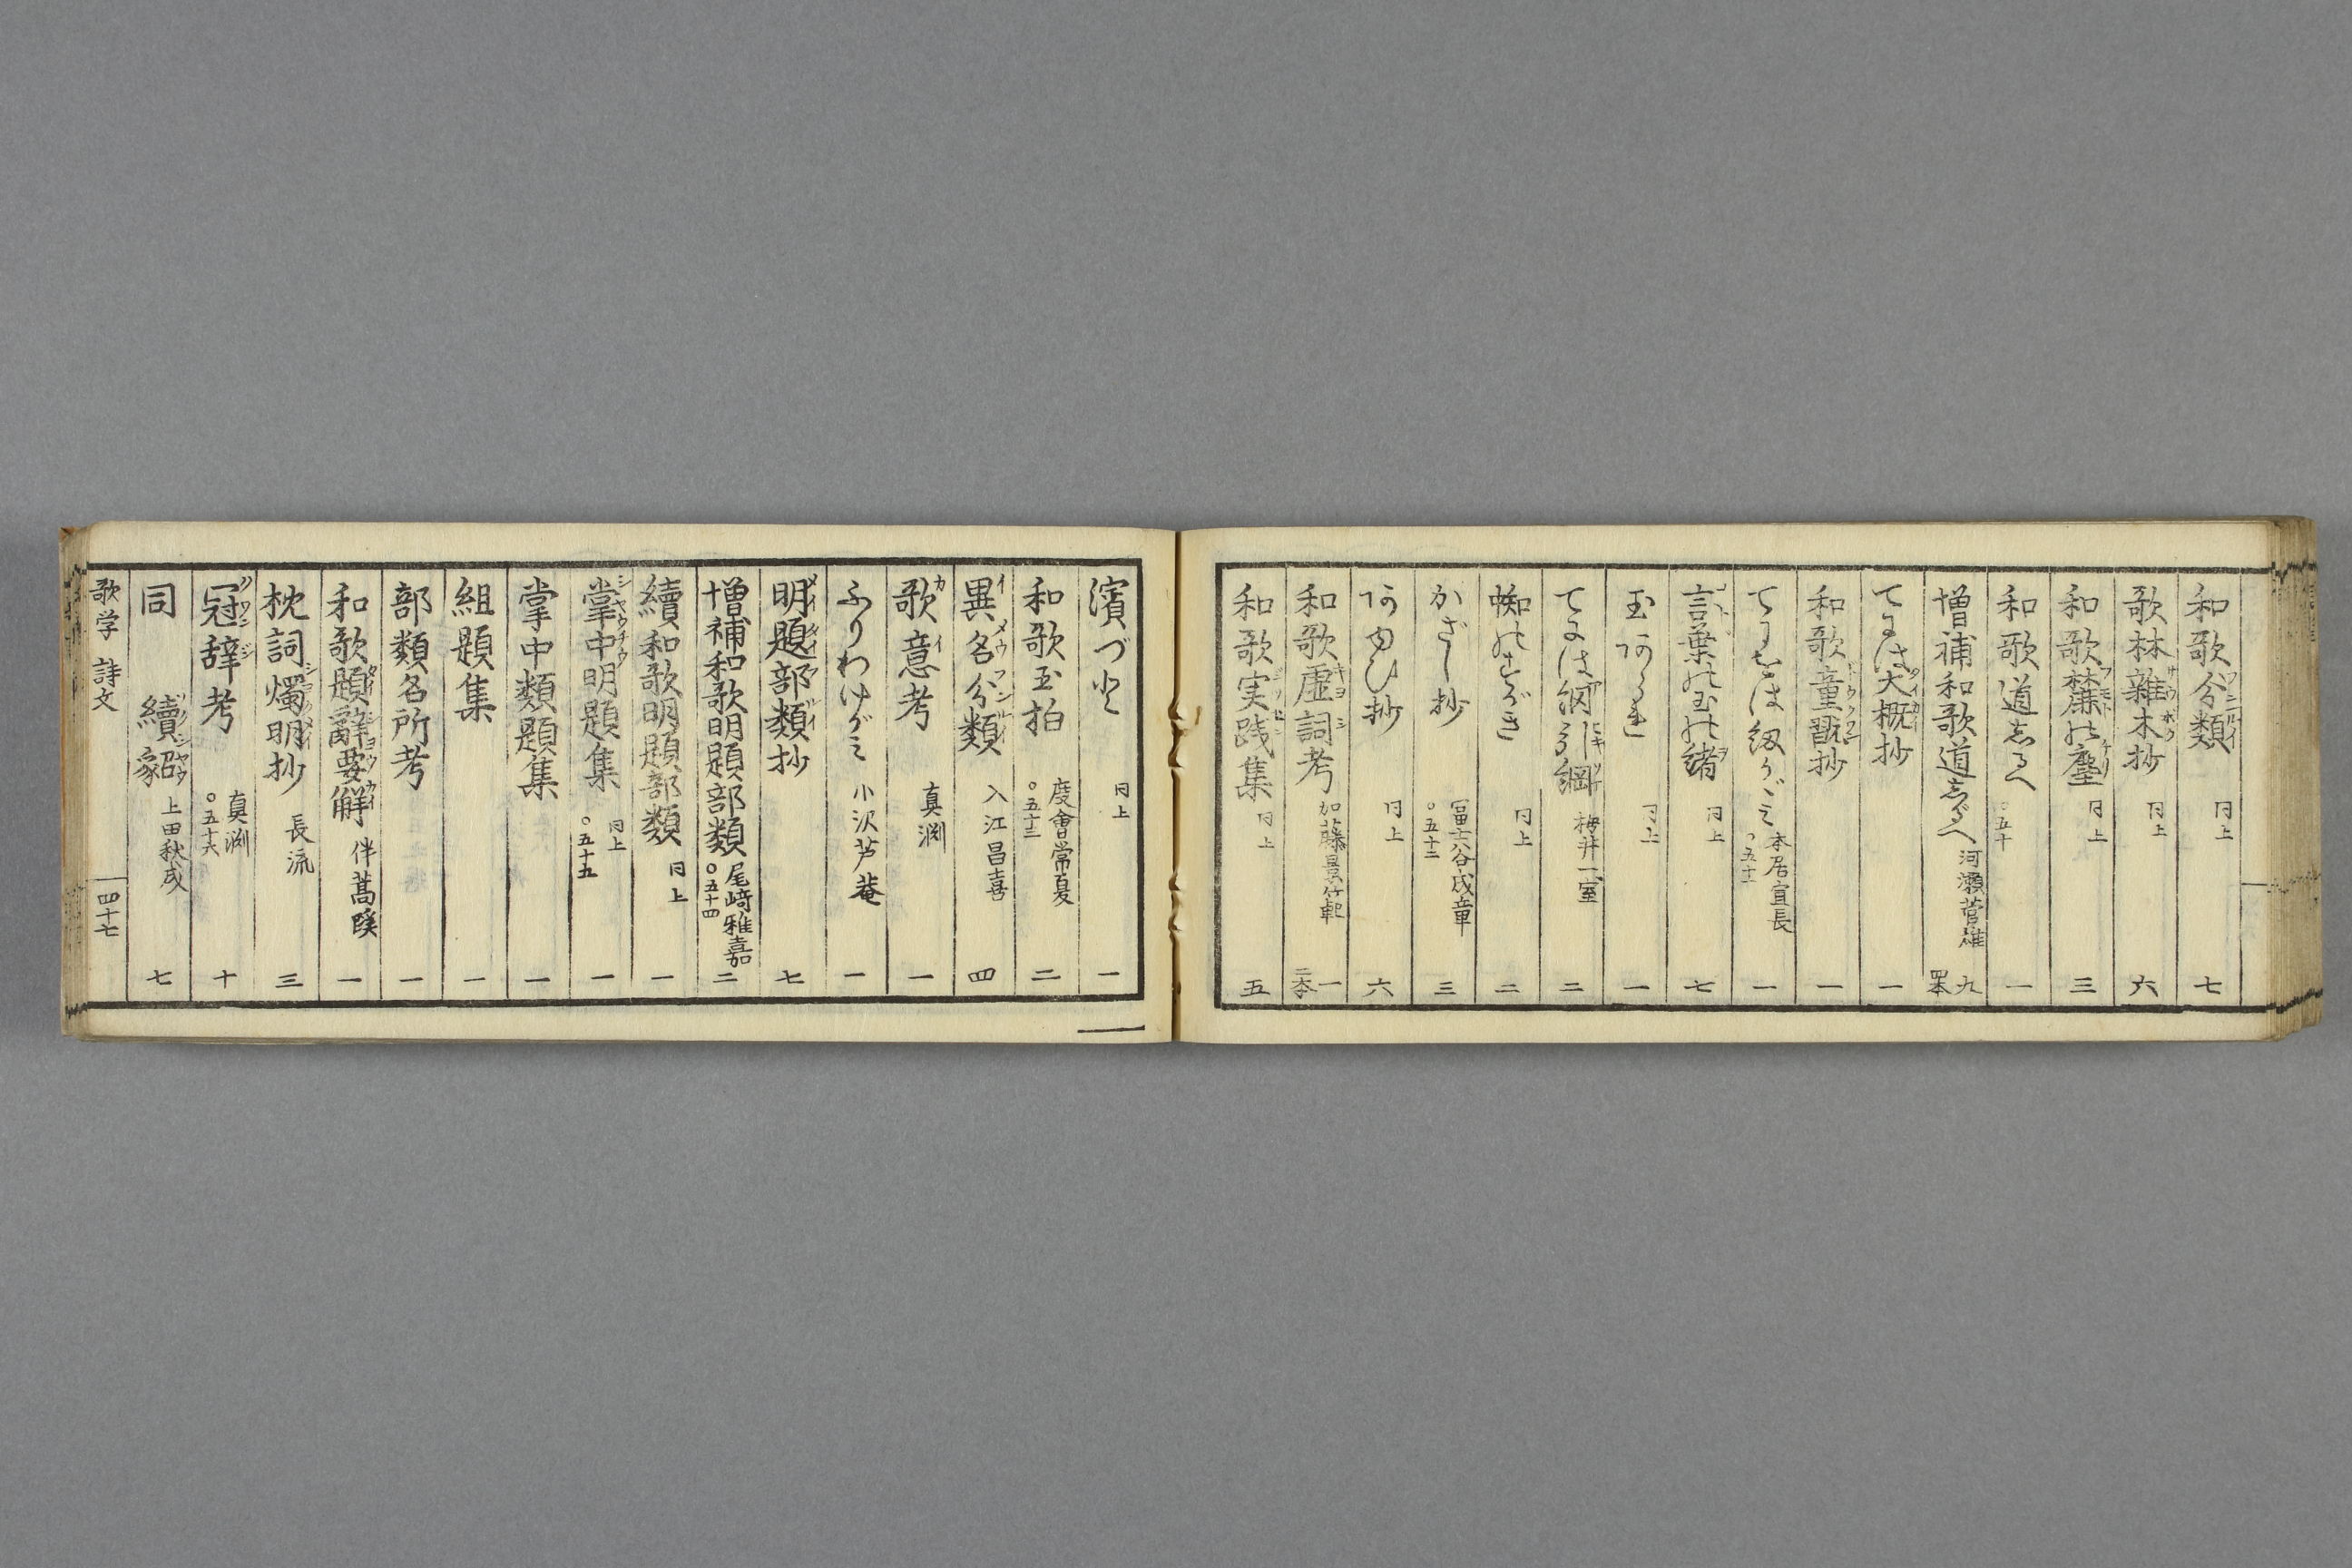 和歌分類 同上 七
歌林雑木抄 同上 六
和歌麓の塵 同上 三
和歌道しるへ ○五十 一
増補和歌道しるへ 河瀬菅雄 九 四本
てには大概抄 一
和歌童翫抄 一
てにをは紐かゞみ 本居宣長 ○五十一 一
言葉の玉の緒 同上 七
玉あられ 同上 一
てには網引綱 栂井一室 二
蜘のすがき 同上 二
かざし抄 冨士谷成章 ○五十二 三
あゆひ抄 同上 六
和歌虚詞考 加藤景範 一 二本
和歌実践集 同上 五
濱づと 同上 一
和歌玉拍 度會常夏 ○五十三 二
異名分類 入江昌喜 四
歌意考 真渕 一
ふりわけがミ 小沢芦菴 一
明題部類抄 七
増補和歌明題部類 尾﨑雅嘉 ○五十四 二
續和歌明題部類 同上 一
掌中明題集 同上 ○五十五 一
掌中類題集 一
組題集 一
部類名所考 一
和歌題辭要解 伴蒿蹊 一
枕詞燭明抄 長流 三
冠辞考 真渕 ○五十六 十
同 續貂 上田秋成 七
歌学 詩文 四十七